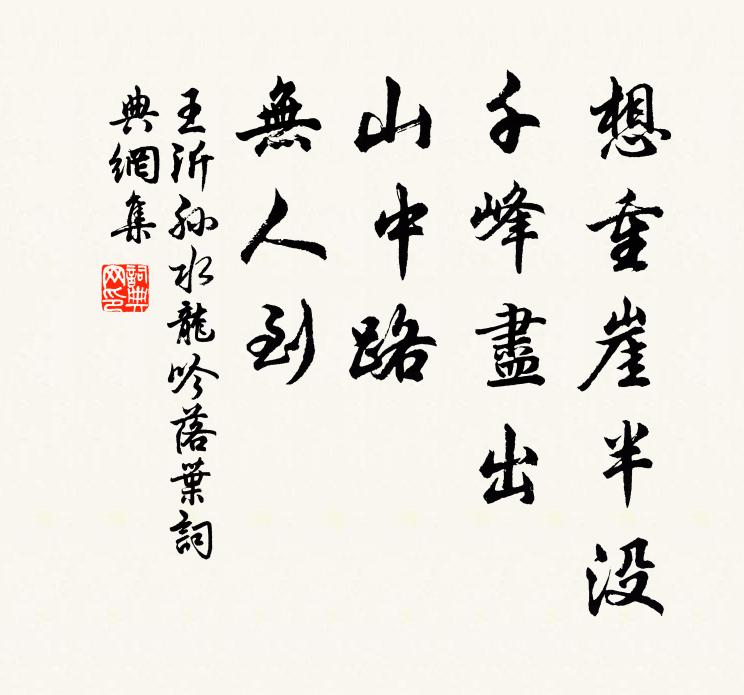 想重崖半没
千峰盡出
山中路
無人到
王沂孙水龍吟落葉詞
典網集
詞典網印